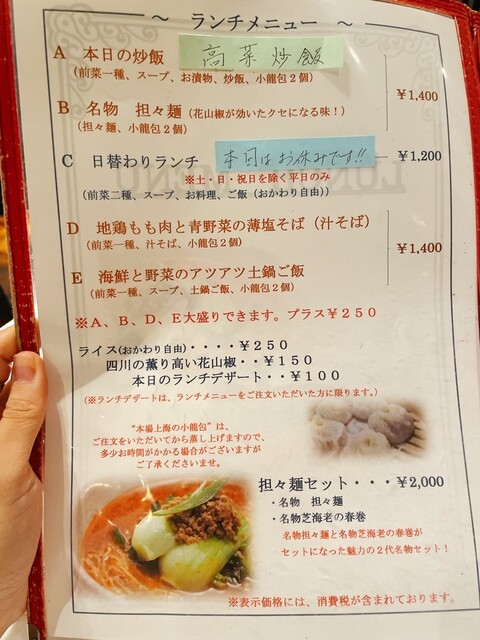 ～ ランチメニュー ～
A 本日の炒飯 高菜炒飯
（前菜一種、スープ、お漬物、炒飯、小龍包２個）
￥1,400
B 名物 担々麺（花山椒が効いたクセになる味！）
（担々麺、小龍包２個）
C 日替わりランチ 本日はお休みです!! ￥1,200
※土・日・祝日を除く平日のみ
（前菜二種、スープ、お料理、ご飯（おかわり自由））
D 地鶏もも肉と青野菜の薄塩そば（汁そば）
（前菜一種、汁そば、小龍包２個）
￥1,400
E 海鮮と野菜のアツアツ土鍋ご飯
（前菜一種、スープ、土鍋ご飯、小龍包２個）
※Ａ、Ｂ、Ｄ、Ｅ大盛りできます。プラス￥２５０
ライス（おかわり自由）・・・・￥２５０
四川の薫り高い花山椒・・￥１５０
本日のランチデザート・・￥１００
（※ランチデザートは、ランチメニューをご注文いただいた方に限ります。）
“本場上海の小龍包”は、
ご注文をいただいてから蒸し上げますので、
多少お時間がかかる場合がございますが
ご了承くださいませ。
担々麺セット・・・￥2,000
・名物 担々麺
・名物芝海老の春巻
名物担々麺と名物芝海老の春巻が
セットになった魅力の２代名物セット！
※表示価格には、消費税が含まれております。